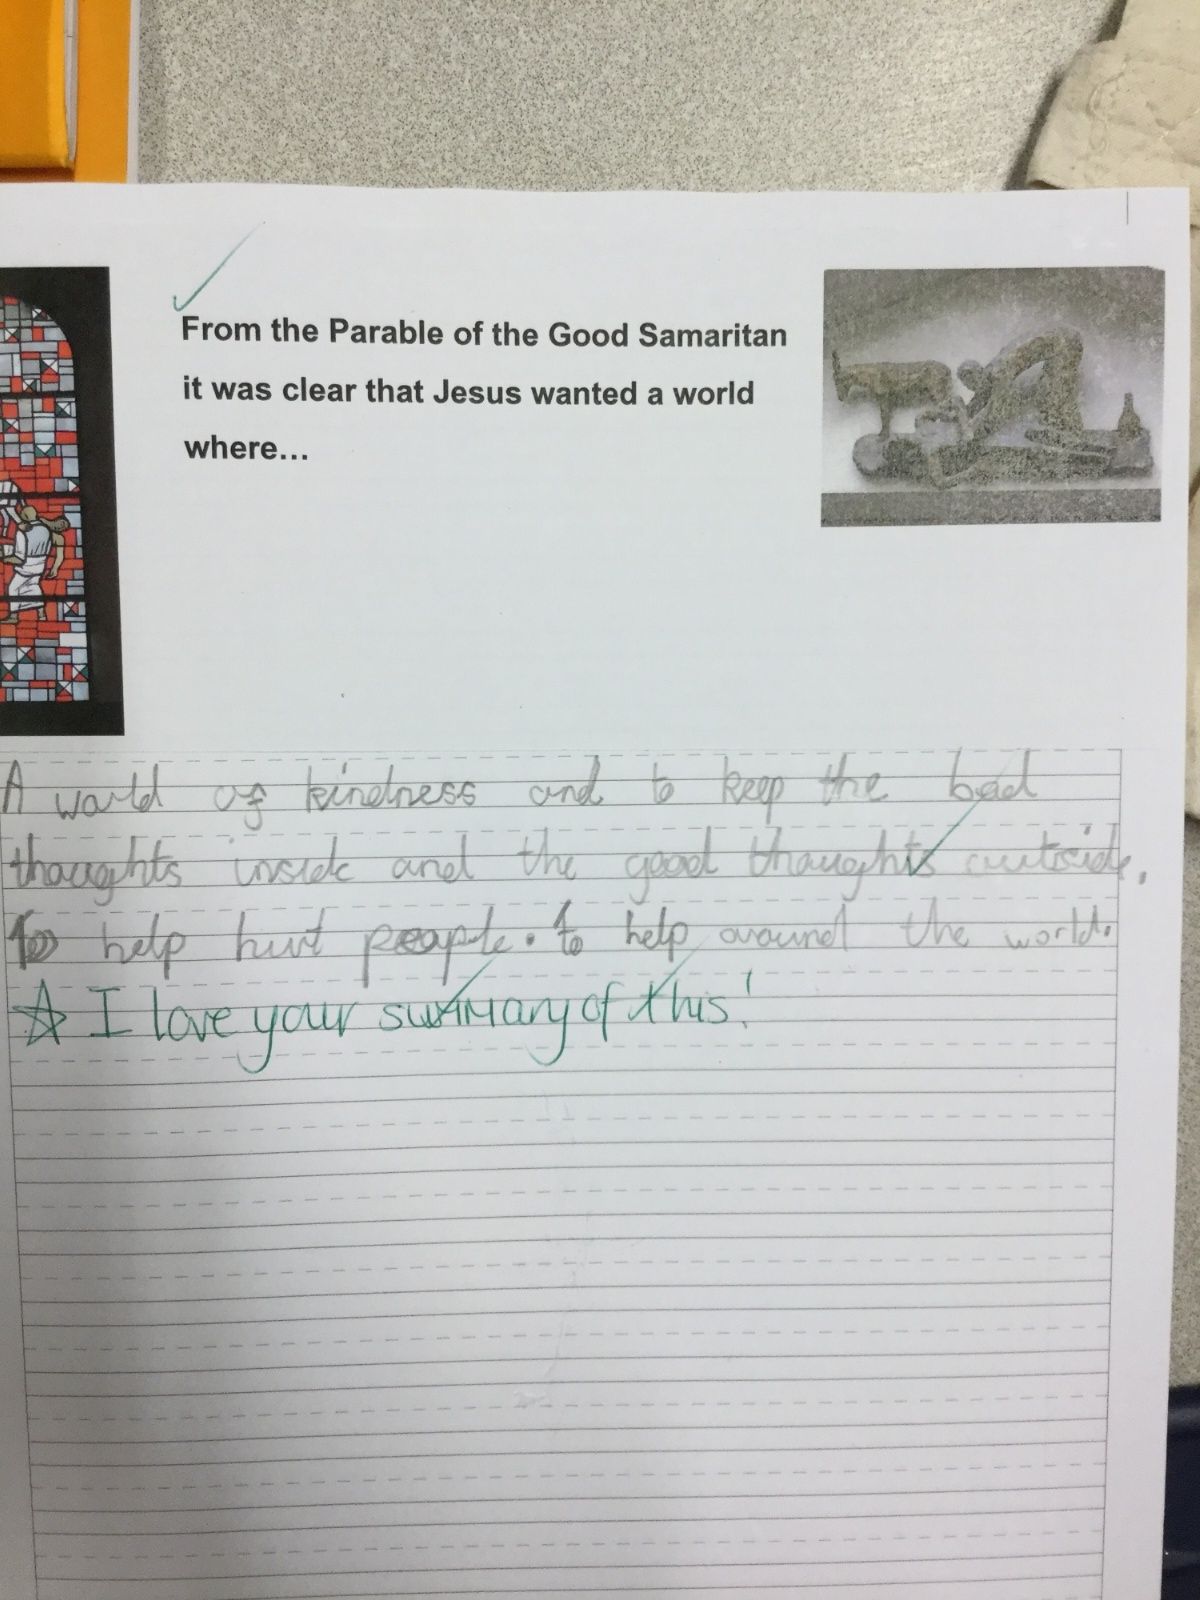 From the Parable of the Good Samaritan
it was clear that Jesus wanted a world
where...
A world of kindness and to keep the bad
thoughts inside and the good thoughts outside,
To help hurt people. to help around the world.
☆ I love your summary of this!